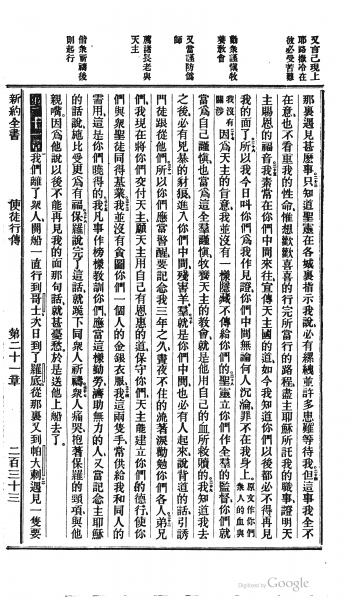 又言己現上
耶路撒冷在
彼必受苦難
勸衆謹愼牧
養敎會
又當謹防僞
師
薦諸長老與
天主
偕衆祈禱後
則起行
那裏遇見甚麽事只知道聖靈在各城裏指示我說必有縲絏並許多患難等待我但這事我全不
在意也不看重我的性命惟想歡歡喜喜的行完所當行的路程盡主耶穌所託我的職事證明天
主賜恩的福音我素常在你們中間來往宣傳天主國的道如今我知道你們以後都必不得再見
我的面了所以我今日呌你們爲我作見證你們中間無論何人沉淪罪不在我身上
原文作你們衆人的血與
我沒有關涉
因爲天主的旨意我並沒有一樣隱藏不傳給你們的聖靈立你們作全羣的監督你們就
當爲自己謹愼也當爲這全羣謹愼牧養天主的敎會就是他用自己的血所救贖的我知道我去
之後必有兇暴的豺狼進入你們中間殘害羊羣就是你們中間也必有人起來說背道的話引誘
門徒跟從他們所以你們應當警醒要記念我三年之久晝夜不住的流著淚勸勉你們各人弟兄
們我現在將你們交付天主願天主用自己有恩惠的道保守你們天主能建立你們的德行使你
們與衆聖徒同得基業我並沒有貪圖你們一個人的金銀衣服我這兩隻手常供給我和同人的
需用這是你們曉得的我凡事作榜樣敎訓你們應當這樣勤勞濟助無力的人又當記念主耶穌
的話說施比受更爲有福保羅說完了這話就跪下同衆人祈禱衆人痛哭抱著保羅的頸項與他
親嘴因爲他說以後不能再見我的面那句話就甚憂愁於是送他上船去了
第二十一章 我們離了衆人開船一直行到哥士次日到了羅底從那裏又到帕大喇遇見一隻要
新約全書 使徒行傳 第二十一章 二百三十三
Digitized by Google